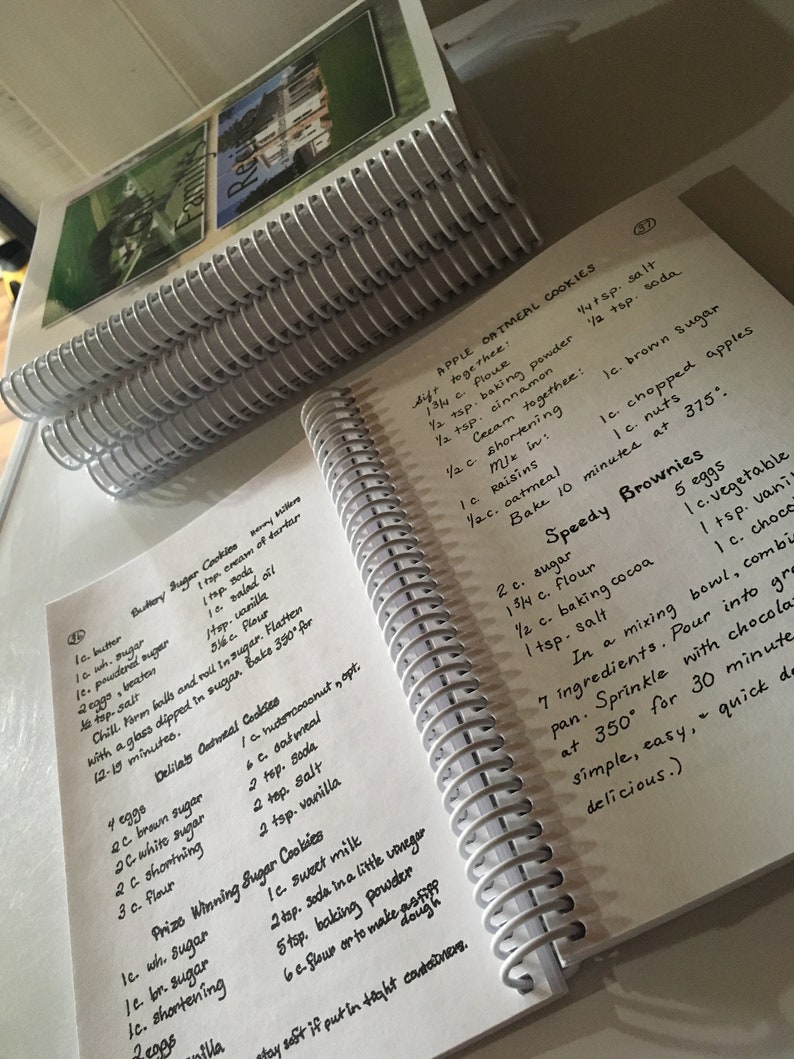 Our
Family
36
Buttery Sugar Cookies
1 c. butter
1 tsp. cream of tartar
1 c. wh. sugar
1 tsp. soda
1 c. powdered sugar
1 c. salad oil
2 eggs, beaten
1 tsp. vanilla
½ tsp. salt
5½ c. flour
Chill. Form balls and roll in sugar. Flatten
with a glass dipped in sugar. Bake 350° for
12-15 minutes.
Delila's Oatmeal Cookies
4 eggs
1 c. nuts or coconut, opt.
2 c. brown sugar
6 c. oatmeal
2 c. white sugar
2 tsp. soda
2 c. shortning
2 tsp. salt
3 c. flour
2 tsp. vanilla
Prize Winning Sugar Cookies
1 c. wh. sugar
1 c. sweet milk
1 c. br. sugar
2 tsp. soda in a little vinegar
1 c. shortening
5 tsp. baking powder
2 eggs
6 c. flour or to make
dough
stay soft if put in tight containers.
37
APPLE OATMEAL COOKIES
Sift together:
1 3/4 c. flour
1/4 tsp. salt
1/2 tsp. baking powder
1/2 tsp. soda
1/2 tsp. cinnamon
Cream together:
1/2 c. shortening
1c. brown sugar
Mix in:
1 c. raisins
1c. chopped apples
1/2 c. oatmeal
1 c. nuts
Bake 10 minutes at 375°.
Speedy Brownies
2 c. sugar
5 eggs
1 3/4 c. flour
1 c. vegetable
1/2 c. baking cocoa
1 tsp.
1 tsp. salt
1 c.
In a mixing bowl,
7 ingredients. Pour into
pan. Sprinkle with
at 350° for 30
simple, easy, + quick
delicious.)